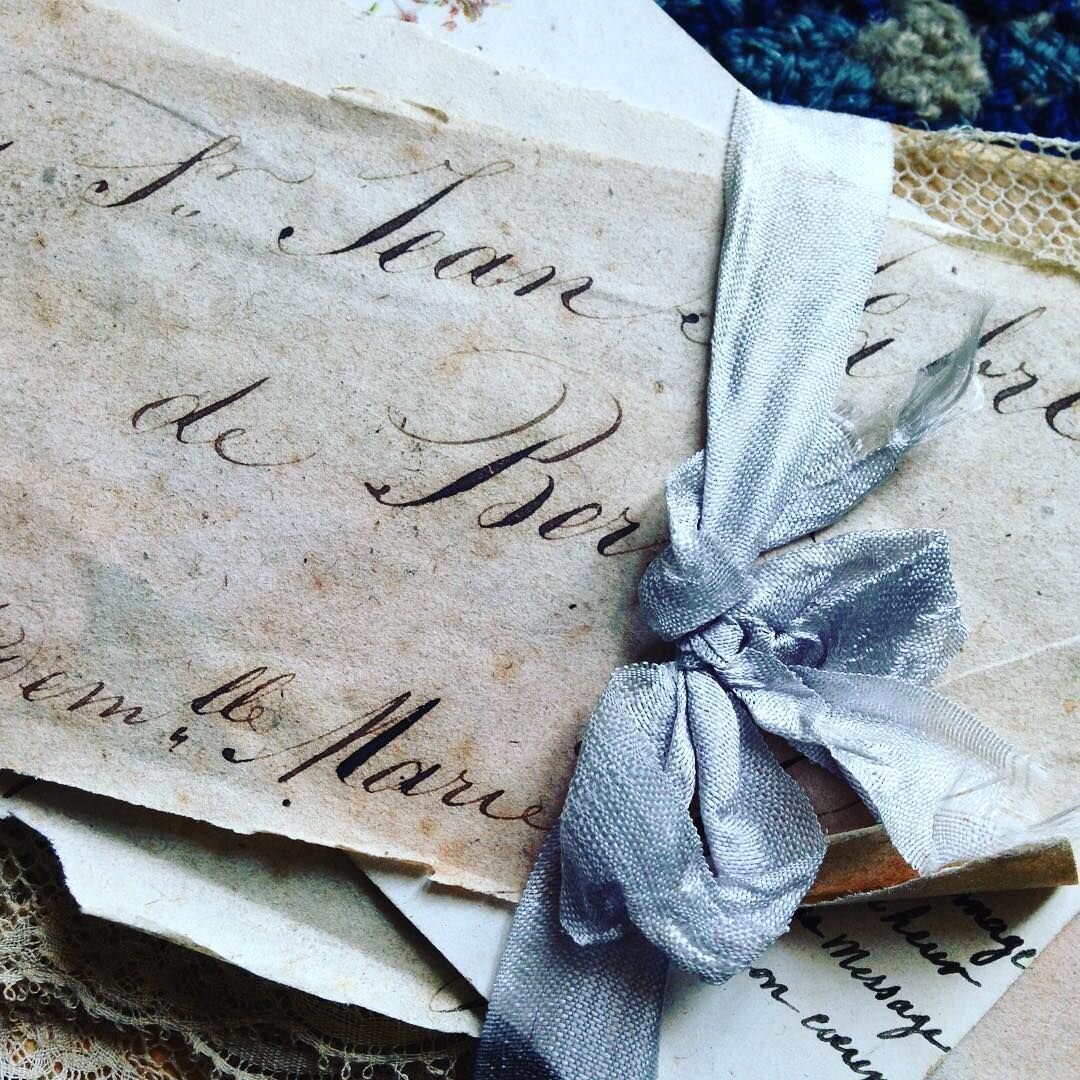 Sr Jean
de Ber
Dem.lle Marie
mage
cheur
Message
on coeur